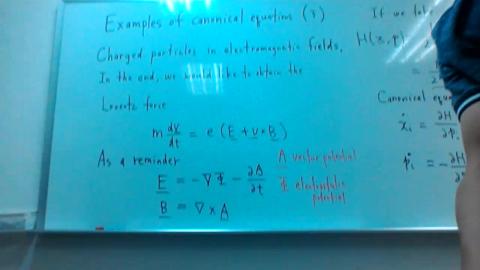 Examples of canonical equations (3)
Charged particles in electromagnetic fields.
In the end, we would like to obtain the
Lorentz force
m dv/dt = e (E + v × B)
As a reminder
E = -∇Φ - ∂A/∂t
B = ∇ × A
A vector potential
Φ electrostatic
potential
If we
H(x, p)
=
Canonical equa
ẋi = ∂H/∂pi
ṗi = -∂H